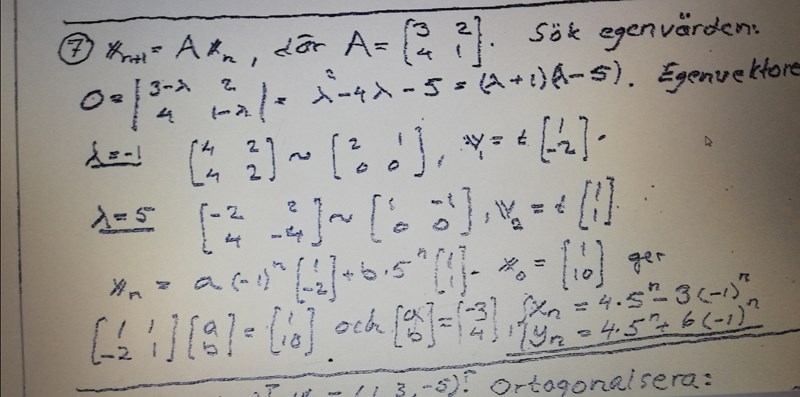 ⑦ 𝕩ₙ₊₁ = A𝕩ₙ, där A = [3 2; 4 1]. Sök egenvärden:
0 = |3-λ 2; 4 1-λ| = λ²-4λ-5 = (λ+1)(λ-5). Egenvektore
λ=-1 [4 2; 4 2] ~ [2 1; 0 0], 𝕧₁ = t[1; -2].
λ=5 [-2 2; 4 -4] ~ [1 -1; 0 0], 𝕧₂ = t[1; 1].
𝕩ₙ = a(-1)ⁿ[1; -2] + b·5ⁿ[1; 1]. 𝕩₀ = [1; 10] ger
[1 1; -2 1][a; b] = [1; 10]. och [a; b] = [-3; 4], {xₙ = 4·5ⁿ - 3(-1)ⁿ; yₙ = 4·5ⁿ + 6(-1)ⁿ
(1, 3, -5)! Ortogonalisera: